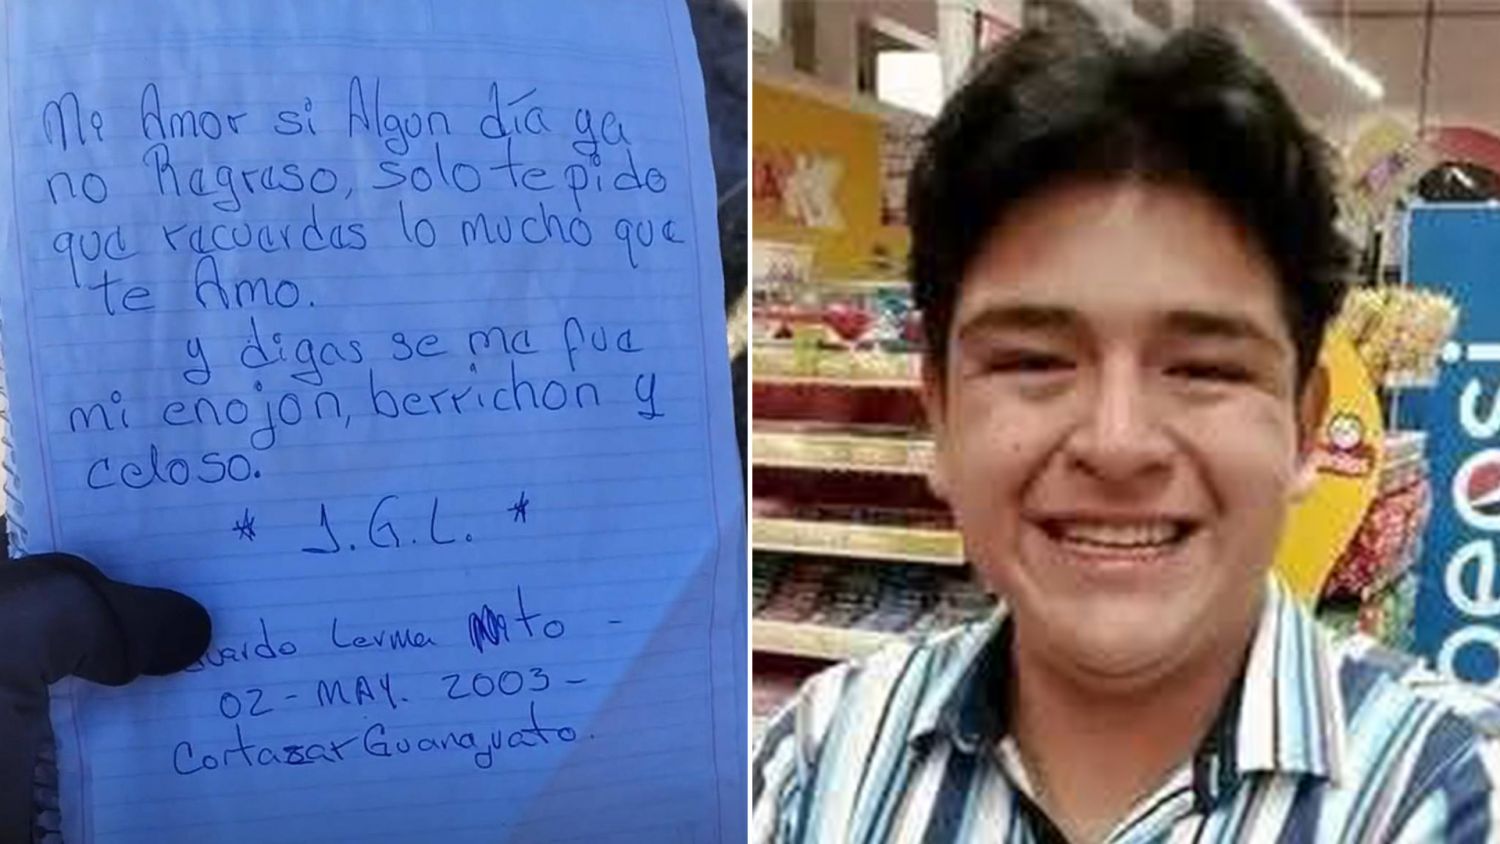 Mi Amor si Algún día ya
no Ragraso, solo te pido
que racuardas lo mucho que
te Amo.
y digas se me fue
mi enojon, berrichon y
celoso.
* J.G.L. *
uardo Lerma Nito -
02 - MAY. 2003 -
Cortazar Guanajuato.
pepsi